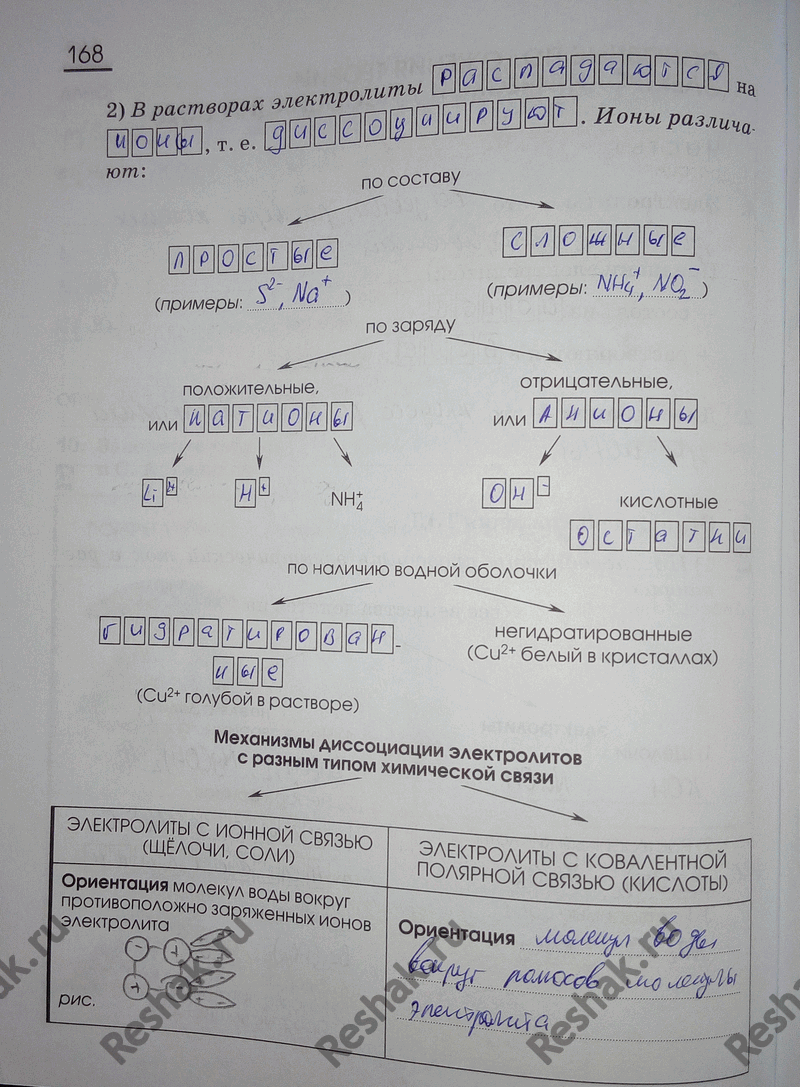 168
2) В растворах электролиты распадаются на
ионы, т. е. диссоциируют. Ионы различа-
ют:
по составу
простые сложные
(примеры: S²⁻, Na⁺) (примеры: NH₄⁺, NO₂⁻)
по заряду
положительные, отрицательные,
или катионы или анионы
Li⁺ H⁺ NH₄⁺ OH⁻ кислотные
остатки
по наличию водной оболочки
гидратирован- негидратированные
ные (Cu²⁺ белый в кристаллах)
(Cu²⁺ голубой в растворе)
Механизмы диссоциации электролитов
с разным типом химической связи
ЭЛЕКТРОЛИТЫ С ИОННОЙ СВЯЗЬЮ
(ЩЁЛОЧИ, СОЛИ)
ЭЛЕКТРОЛИТЫ С КОВАЛЕНТНОЙ
ПОЛЯРНОЙ СВЯЗЬЮ (КИСЛОТЫ)
Ориентация молекул воды вокруг
противоположно заряженных ионов
электролита
рис.
Ориентация молекул воды
вокруг полюсов молекулы
электролита
Reshak.ru
Reshak.ru
Reshak.ru
Reshak.ru